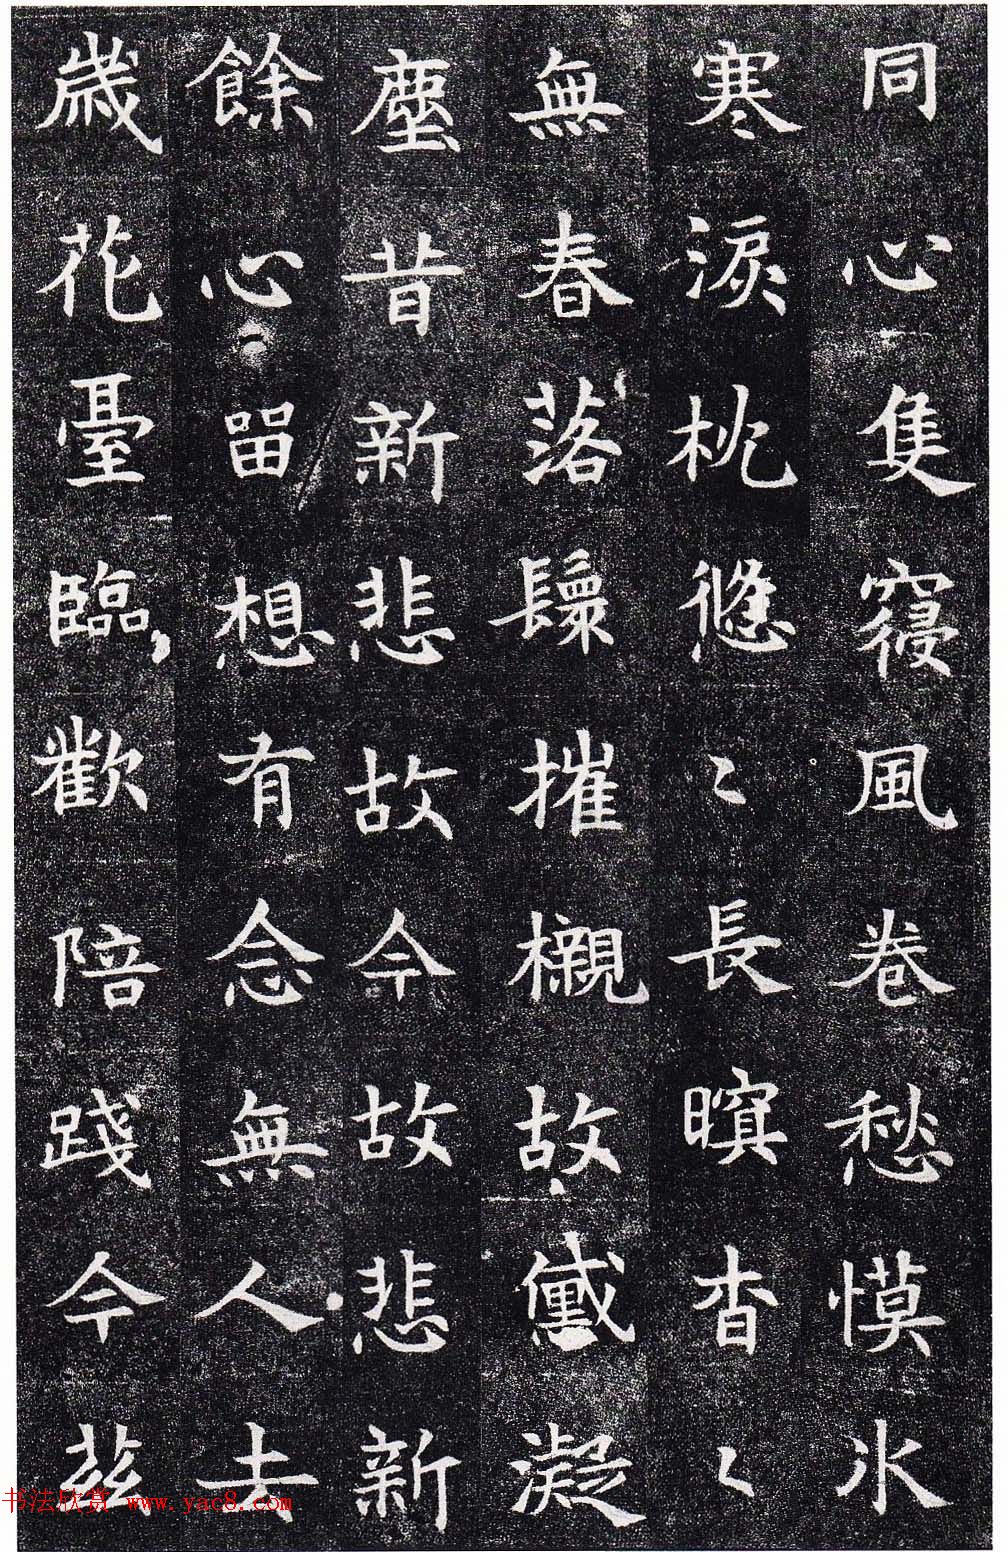 同心隻寑風卷愁慔氷
寒淚枕悠〻長暝杳〻
無春落鬟摧櫬故黛凝
塵昔新悲故今故悲新
餘心留想有念無人去
歲花臺臨歡陪踐今茲
书法欣赏 www.yac8.com